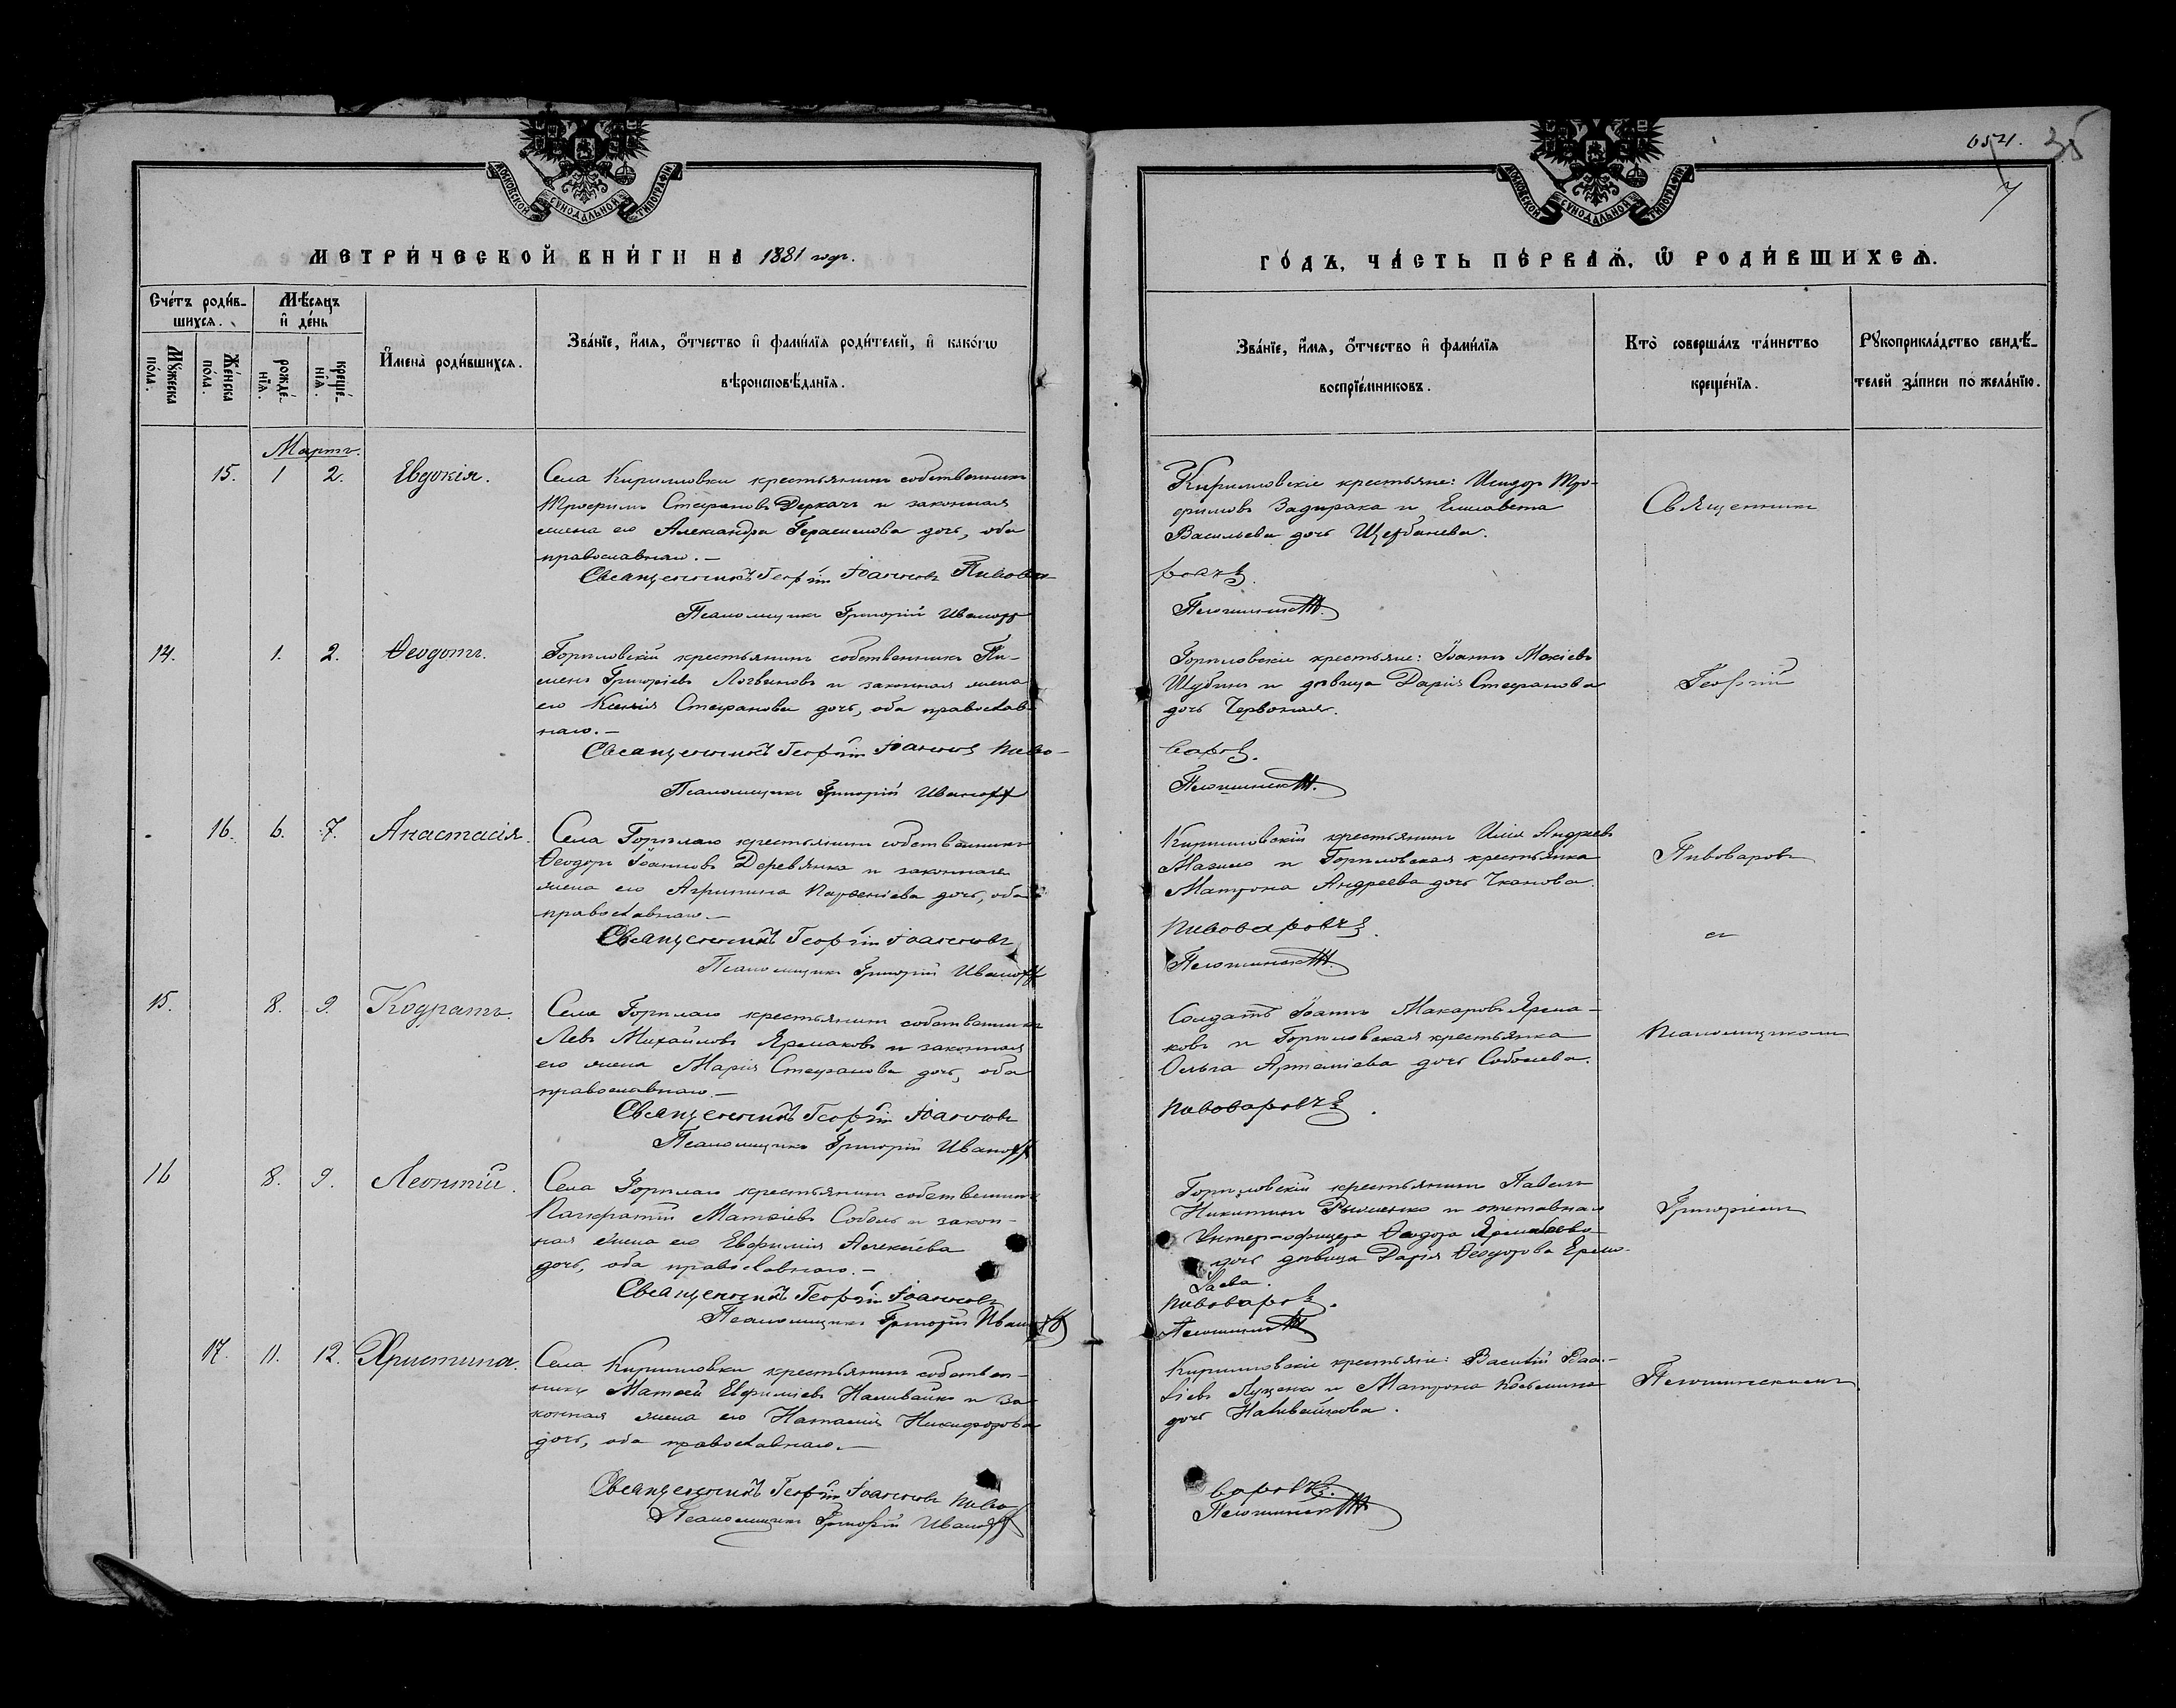 МОСКОВСКОЙ СУНОДАЛЬНОЙ ТИПОГРАФІИ
МЕТРИ́ЧЕСКОЙ КНИ́ГИ НА 1881 годъ.
Сче́тъ роди́в-
шихся.
Мѣ́сяцъ
и де́нь
Му́жеска
по́ла.
Же́нска
по́ла.
рожде́-
нїя.
креще́-
нїя.
И҆мена̀ роди́вшихся.
Зва́нїе, и҆́мя, ѻ҆́тчество и҆ фами́лїя роди́телей, и҆ како́гѡ
вѣроисповѣ́данїя.
Мартъ.
15. 1 2. Евдокія.
Села Кирилловки крестьянинъ собственникъ
Трофимъ Стефановъ Деркачъ и законная
жена его Александра Герасимова дочь, оба
православнаго.—
Священникъ Георгій Іоанновъ Пивова-
Псаломщикъ Григорій Ивановъ
14. 1. 2. Ѳеодотъ.
Гориловскій крестьянинъ собственникъ Пи-
менъ Григоріевъ Логвиновъ и законная жена
его Ксенія Стефанова дочь, оба православ-
наго.—
Священникъ Георгій Іоанновъ Пиво-
Псаломщикъ Григорій Ивановъ
16. 6. 7. Анастасія.
Села Горилаго крестьянинъ собственникъ
Ѳеодоръ Іоанновъ Деревянка и законная
жена его Агрипина Парѳеніева дочь, оба
православнаго.—
Священникъ Георгій Іоанновъ
Псаломщикъ Григорій Ивановъ
15. 8. 9. Кодратъ.
Села Горилаго крестьянинъ собственникъ
Левъ Михайловъ Ярмаковъ и законная
его жена Марія Стефанова дочь, оба
православнаго.—
Священникъ Георгій Іоанновъ
Псаломщикъ Григорій Ивановъ
16 8. 9. Леонтій.
Села Горилаго крестьянинъ собственникъ
Панкратій Матѳіевъ Соболь и закон-
ная жена его Евфимія Алексіева
дочь, оба православнаго.—
Священникъ Георгій Іоанновъ
Псаломщикъ Григорій Иванов
17. 11. 12. Христина.
Села Кирилловки крестьянинъ собствен-
никъ Матѳей Евфиміевъ Наливайко и за-
конная жена его Наталія Никифорова
дочь, оба православнаго.—
Священникъ Георгій Іоанновъ Пиво-
Псаломщикъ Григорій Ивановъ
МОСКОВСКОЙ СУНОДАЛЬНОЙ ТИПОГРАФІИ
654. 35
7
ГО́ДЪ, ЧА́СТЬ ПЕ́РВАЯ, Ѡ РОДИ́ВШИХСЯ.
Зва́нїе, и҆́мя, ѻ҆́тчество и҆ фами́лїя
воспрїе́мниковъ.
Кто̀ соверша́лъ та́инство
креще́нїя.
Рꙋкоприкла́дство свидѣ́-
телей за́писи по жела́нїю.
Кирилловскіе крестьяне: Исидоръ Тро-
фимовъ Задирака и Елисавета
Васильева дочь Щербанева.
ровъ.
Священникъ
Гориловскіе крестьяне: Іоаннъ Мокіевъ
Шубинъ и дѣвица Дарія Стефанова
дочь Червоная.
варовъ.
Георгій
Кирилловскій крестьянинъ Илія Андреевъ
Мазило и Гориловская крестьянка
Матрона Андреева дочь Чканова.
Пивоваровъ.
Пивоваровъ
съ
Солдатъ Іоаннъ Макаровъ Ярма-
ковъ и Горпловская крестьянка
Ольга Артеміева дочь Соболева.
Пивоваровъ.
Псаломщикомъ
Горпловскій крестьянинъ Павелъ
Никитинъ и отставнаго
Унтер-офицера Ѳеодора
дочь дѣвица Дарія Ѳеодорова Ермо-
лаева.
Пивоваровъ.
Григоріемъ
Кирилловскіе крестьяне: Василій Вас-
ліевъ Луценко и Матрона Косьмина
дочь Наливайкова.
варовъ.